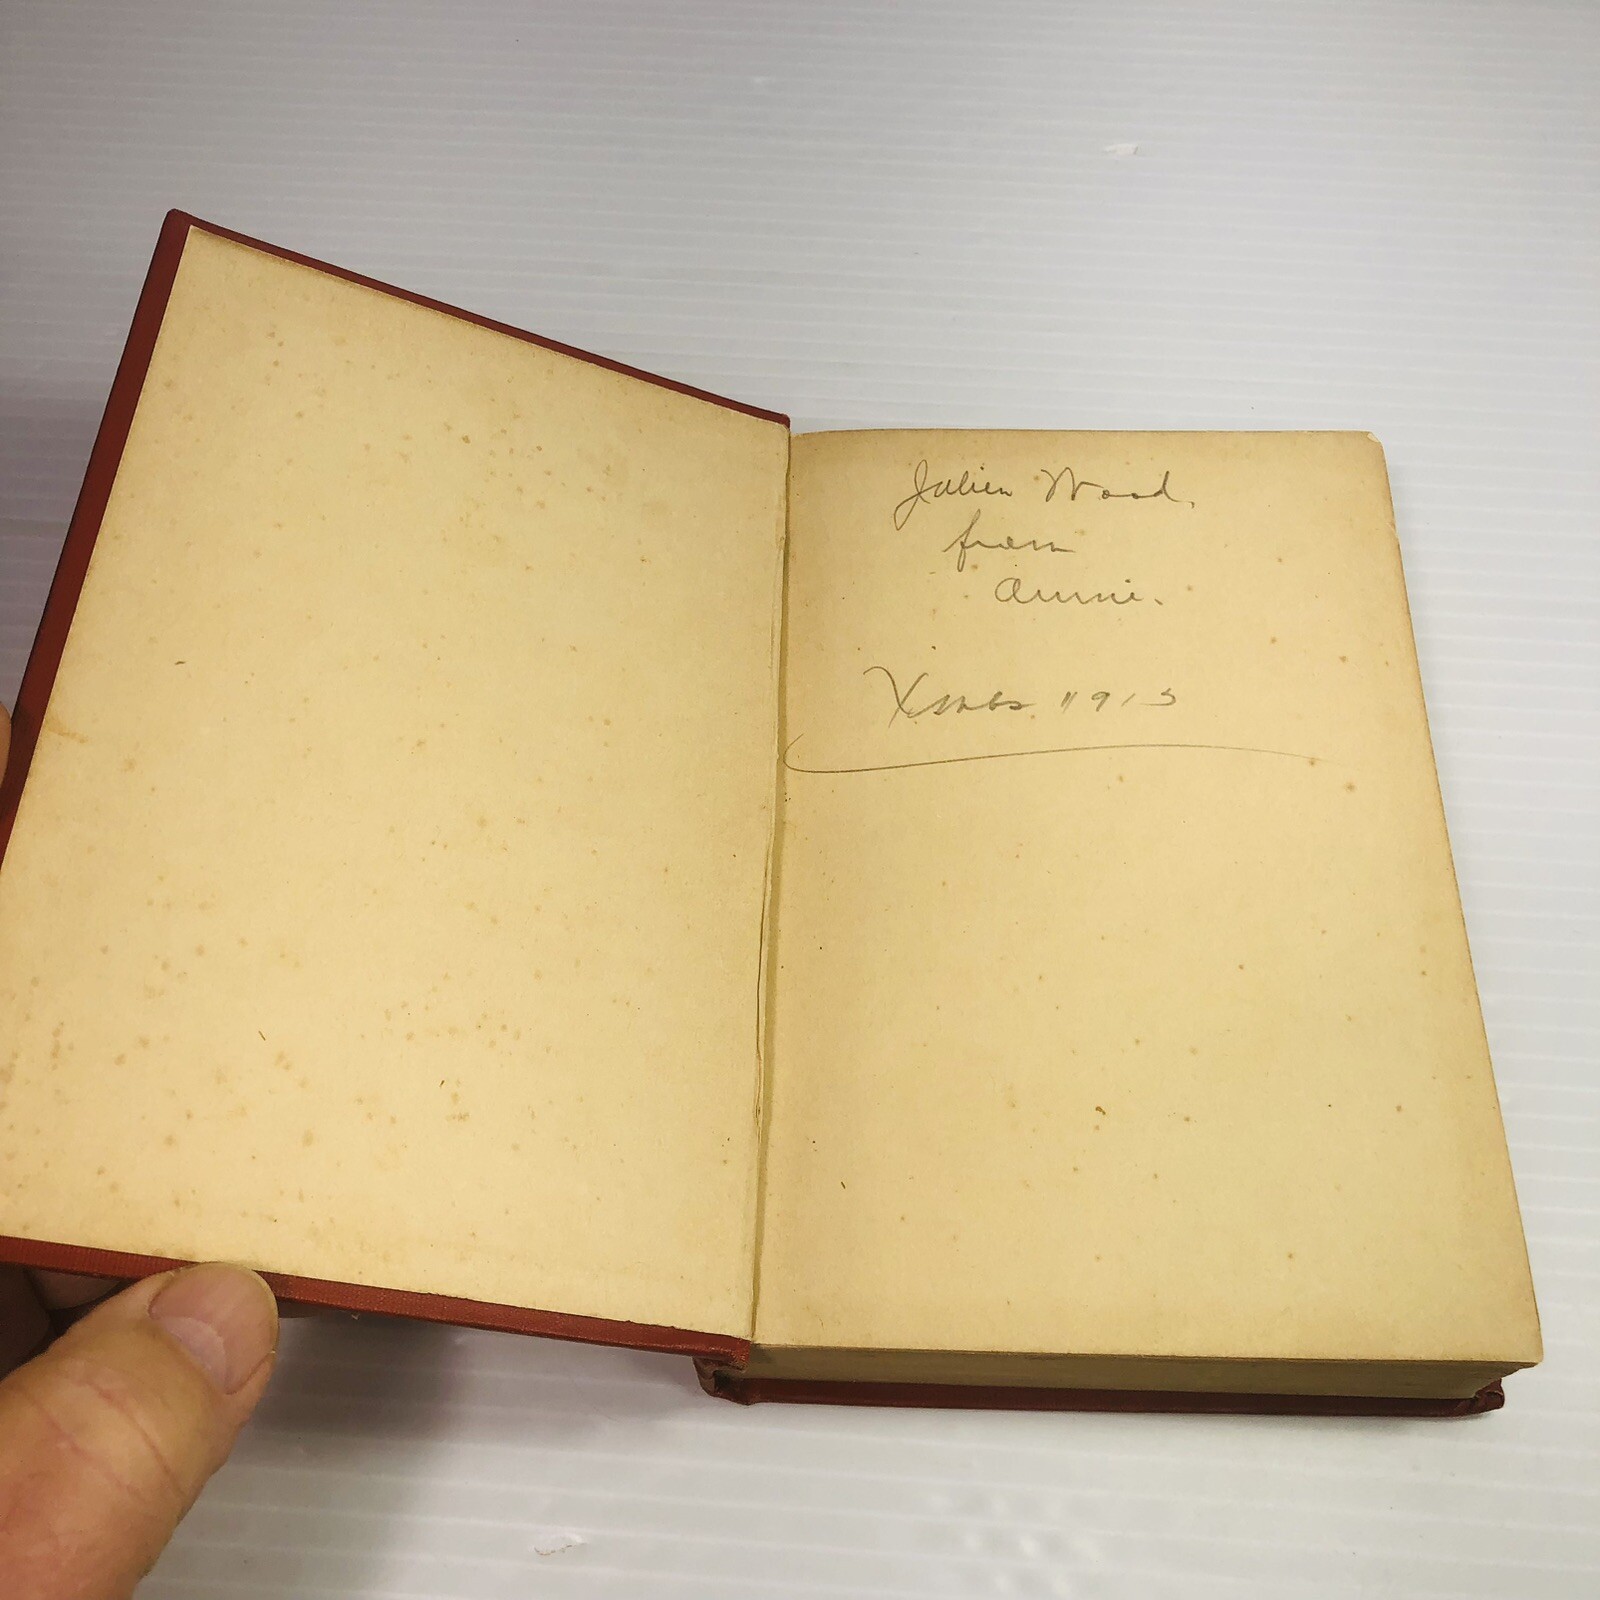 Julien Wood.
from
Annie.
Xmas 1913